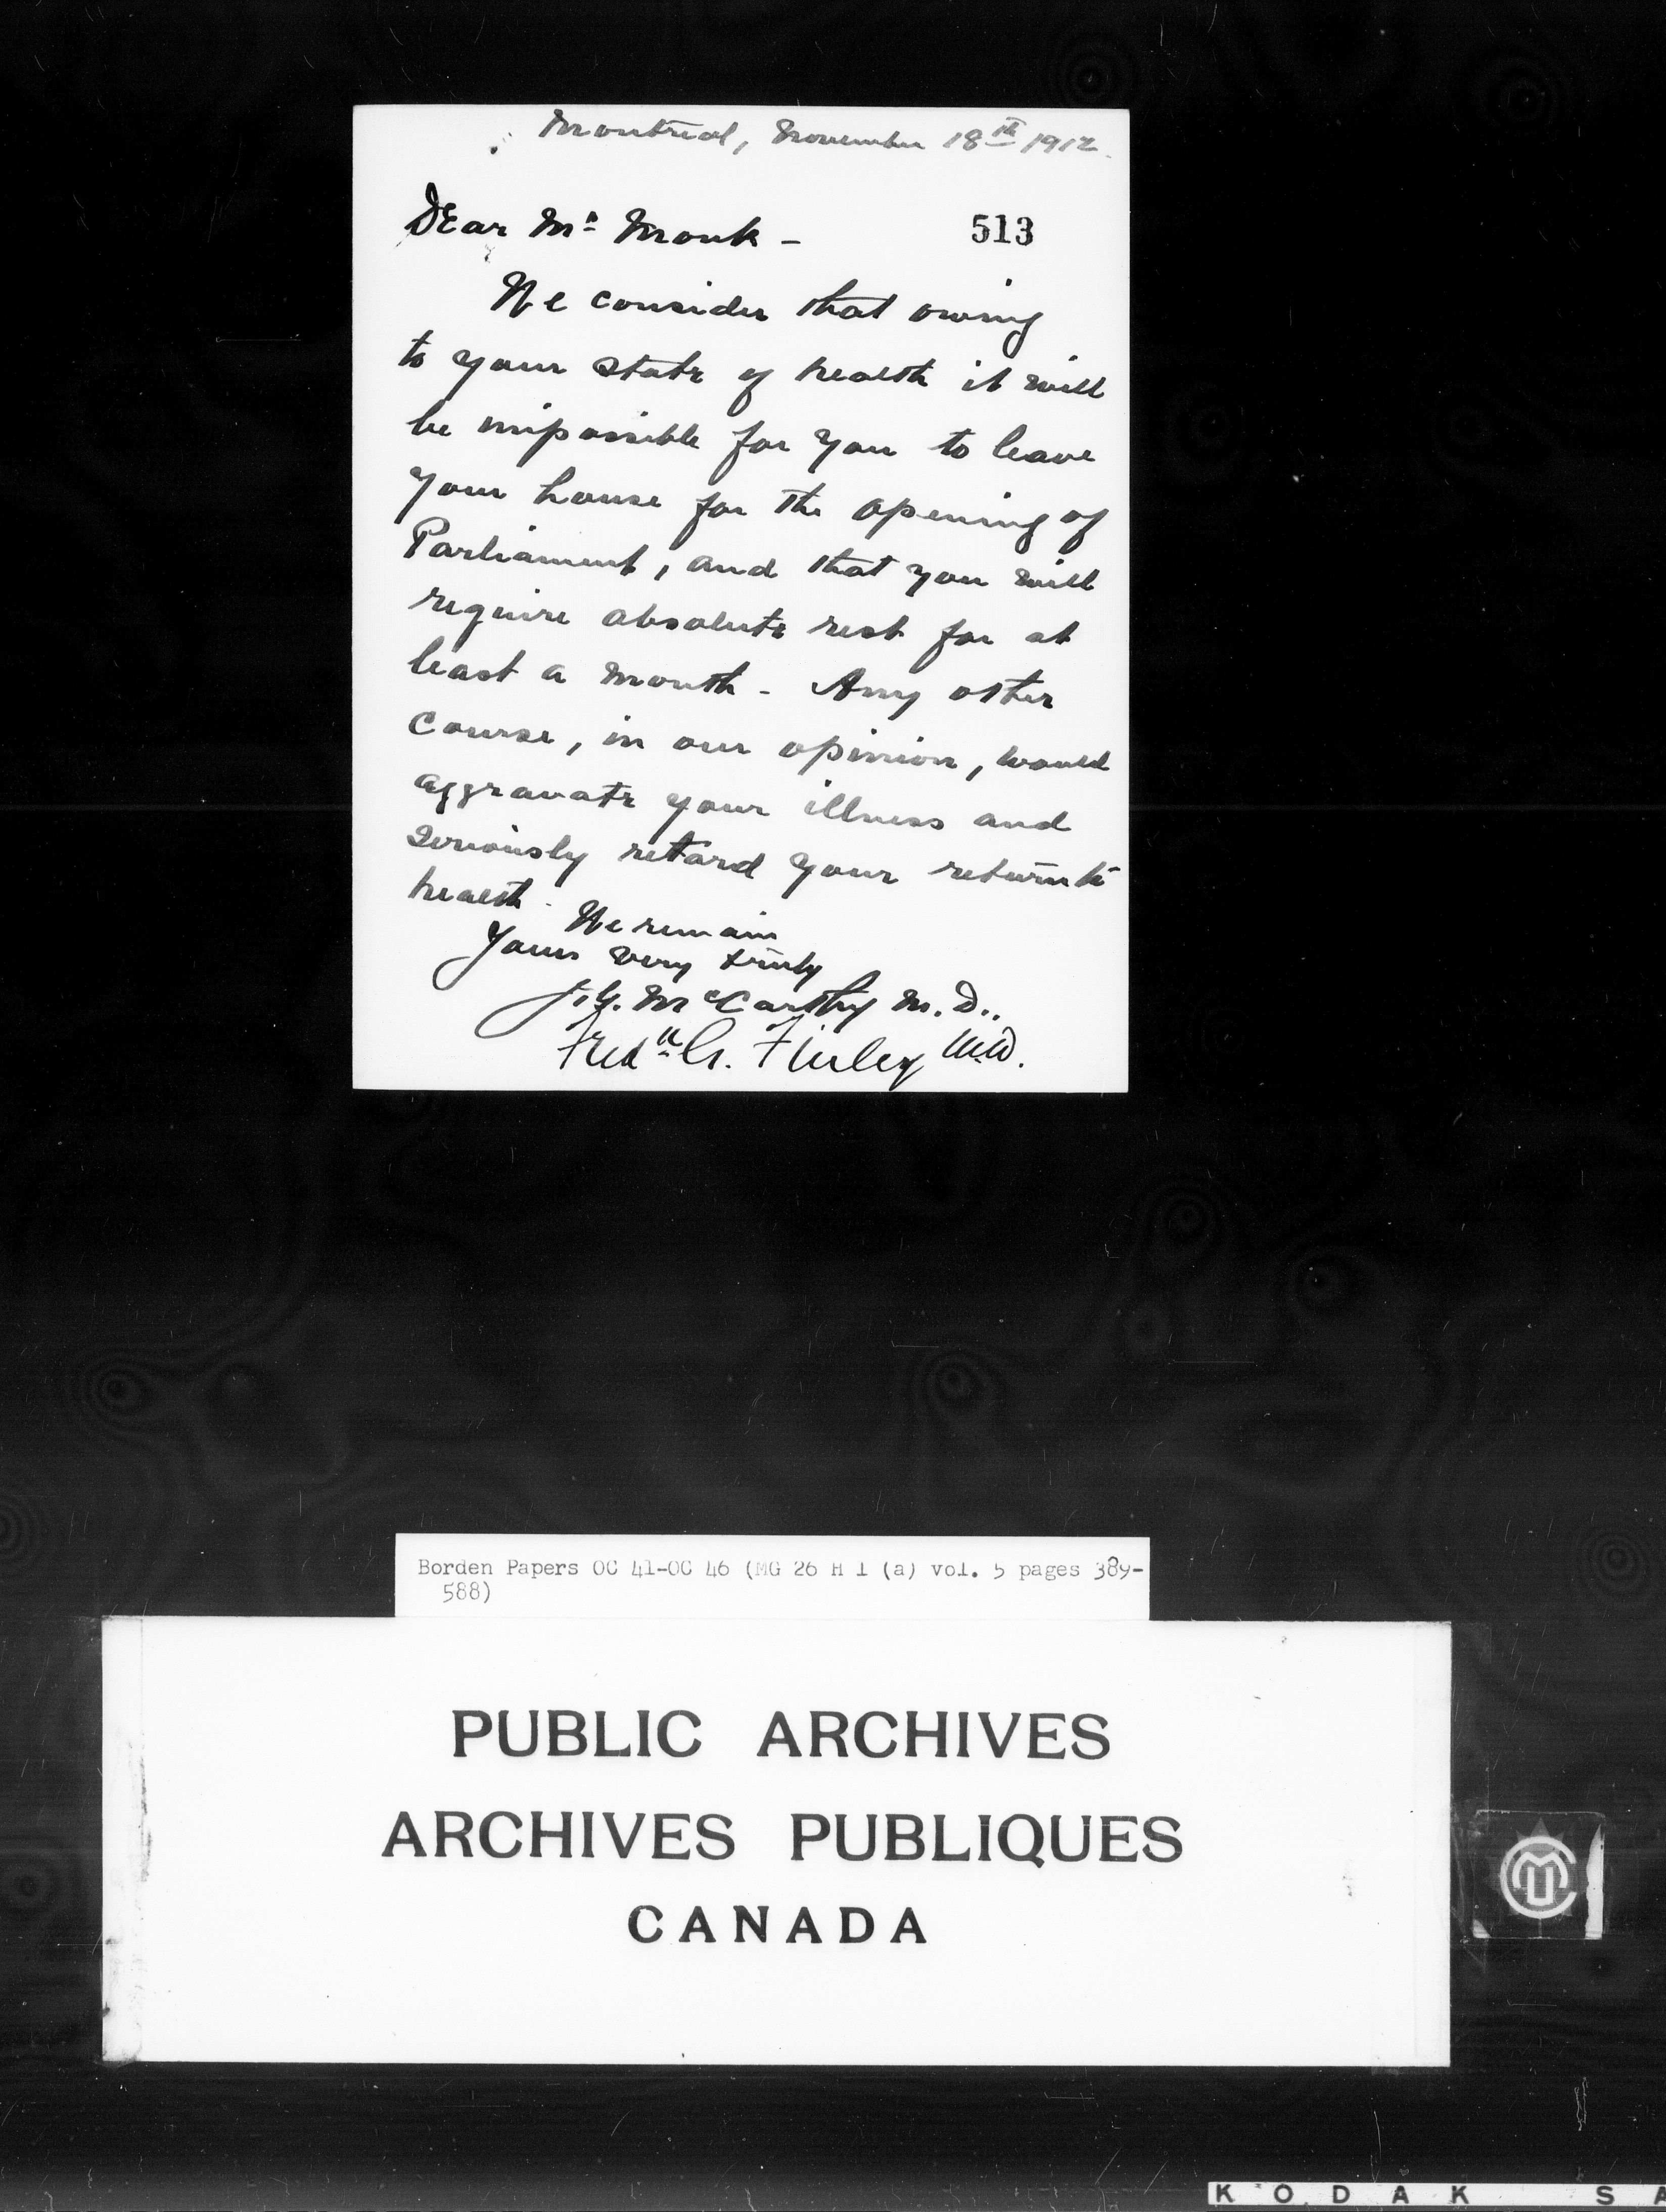 Montreal, November 18th 1912.
Dear Mr Monk -
513
We consider that owing
to your state of health it will
be impossible for you to leave
your house for the opening of
Parliament, and that you will
require absolute rest for at
least a month - Any other
course, in our opinion, would
aggravate your illness and
seriously retard your return to
health -
We remain
Yours very truly
J. G. McCarthy M.D..
Fredk G. Finley M.D.
Borden Papers OC 41-OC 46 (MG 26 H 1 (a) vol. 5 pages 389-
588)
PUBLIC ARCHIVES
ARCHIVES PUBLIQUES
CANADA
KODAK SA